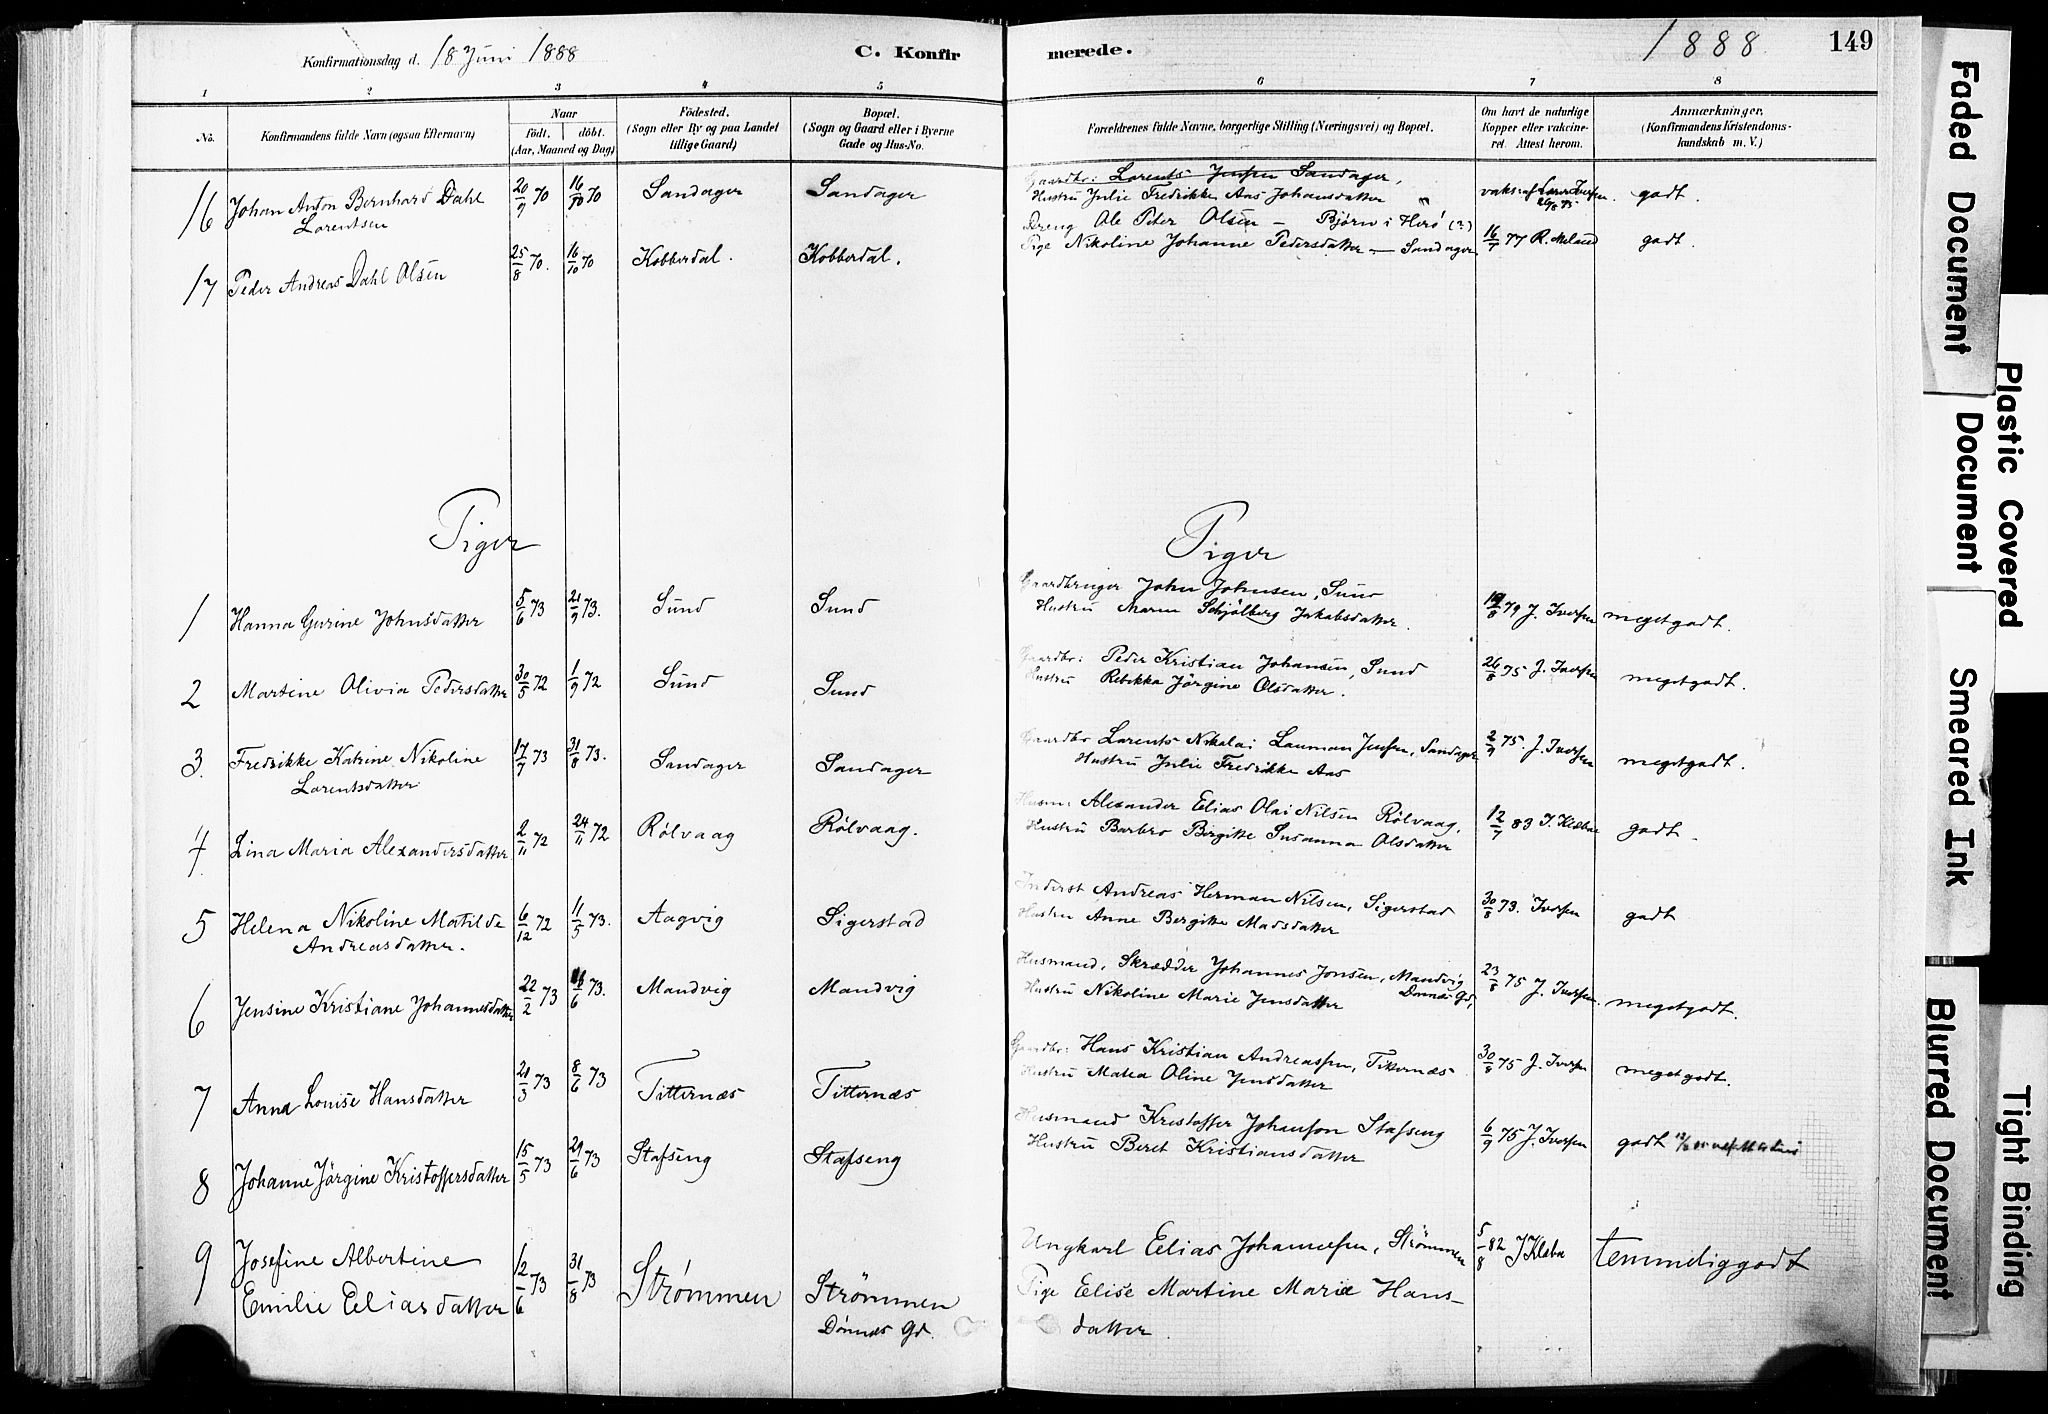 Konfirmationsdag d. 18 Juni 1888
C. Konfirmerede.
1888
149
1 2 3 4 5 6 7 8
No.
Konfirmandens fulde Navn (ogsaa Efternavn)
Naar
født. døbt.
(Aar, Maaned og Dag)
Fødested.
(Sogn eller By og paa Landet
tillige Gaard)
Bopæl.
(Sogn og Gaard eller i Byerne
Gade og Hus-No.
Forældrenes fulde Navne, borgerlige Stilling (Næringsvei) og Bopæl.
Om havt de naturlige
Kopper eller vakcine-
ret. Attest herom.
Anmærkninger,
(Konfirmandens Kristendoms-
kundskab m. V.)
16 Johan Anton Bernhard Dahl
Lorentsen
20/9 70 16/10 70 Sandager Sandager
Gaardbr: Lorents Jensen Sandager,
Hustru Julie Fredrikke Aas Johansdatter "
vaks: af Iversen. godt.
17 Peder Andreas Dahl Olsen
25/8 70. 16/10 70 Kobberdal. Kobberdal.
Dreng Ole Peter Olsen — Bjørn i Herö (?)
Pige Nikoline Johanne Pedersdatter — Sandager
16/7 77 R. godt.
Piger
Piger
1 Hanna Gurine Johnsdatter 5/6 73 21/9 73. Sund Sund
Gaardbruger John Johnsen, Sund
Hustru Maren Schjølberg Jakobsdatter.
79 J. Iversen megetgodt.
2 Martine Olivia Pedersdatter 30/5 72 1/9 72 Sund Sund
Gaardbr: Peder Kristian Johansen, Sund
Hustru Rebekka Jörgine Olsdatter.
26/8 75 J. Iversen megetgodt.
3. Fredrikke Katrine Nikoline
Lorentsdatter
17/7 73 31/8 73. Sandager Sandager
Gaardbr Lorents Nikolai Lauman Jensen, Sandager
Hustru Julie Fredrikke Aas
2/9 75. J. Iversen megetgodt.
4 Lina Maria Alexandersdatter 2/11 72 24/11 72 Rölvaag Rölvaag.
Husm: Alexander Elias Olai Nilsen Rölvaag,
Hustru Barbro Bergitte Susanna Olsdatter
12/7 83 J. Klæboe godt.
5 Helena Nikoline Matilde
Andreasdatter.
6/12 72 11/5 73. Aagvig Sigerstad
Inderst Andreas Herman Nilsen, Sigerstad
Hustru Anne Bergitte Madsdatter
30/8 73. Iversen godt
6 Jensine Kristiane Johannesdatter 22/2 73 73. Mandvig Mandvig
Husmand, Skrædder Johannes Jonsen, Mandvig
Dønnæs Gd,
Hustru Nikoline Marie Jensdatter
23/8 75 J. Iversen. megetgodt.
7 Anna Louise Hansdatter 21/3 73 8/6 73 Titternæs Titternæs
Gaardbr: Hans Kristian Andreassen, Titternæs
Hustru Matea Oline Jensdatter
30/8 75 J. Iversen megetgodt.
8 Johanne Jörgine Kristoffersdatter 15/5 73 29/6 73 Stafseng Stafseng
Husmand Kristoffer Johanson Stafseng
Hustru Beret Kristiansdatter
6/9 75 J. Iversen godt
9 Josefine Albertine
Emilie Eliasdatter
12/6 73 31/8 73 Strømmen Strömmen
Dönnæs Gd.
Ungkarl Elias Johannesen, Strömmen
Pige Elise Martine Marie Hans-
datter.
5/8 82 J Klæboe temmeliggodt
Faded Document
Plastic Covered Document
Smeared Ink
Blurred Document
Tight Binding